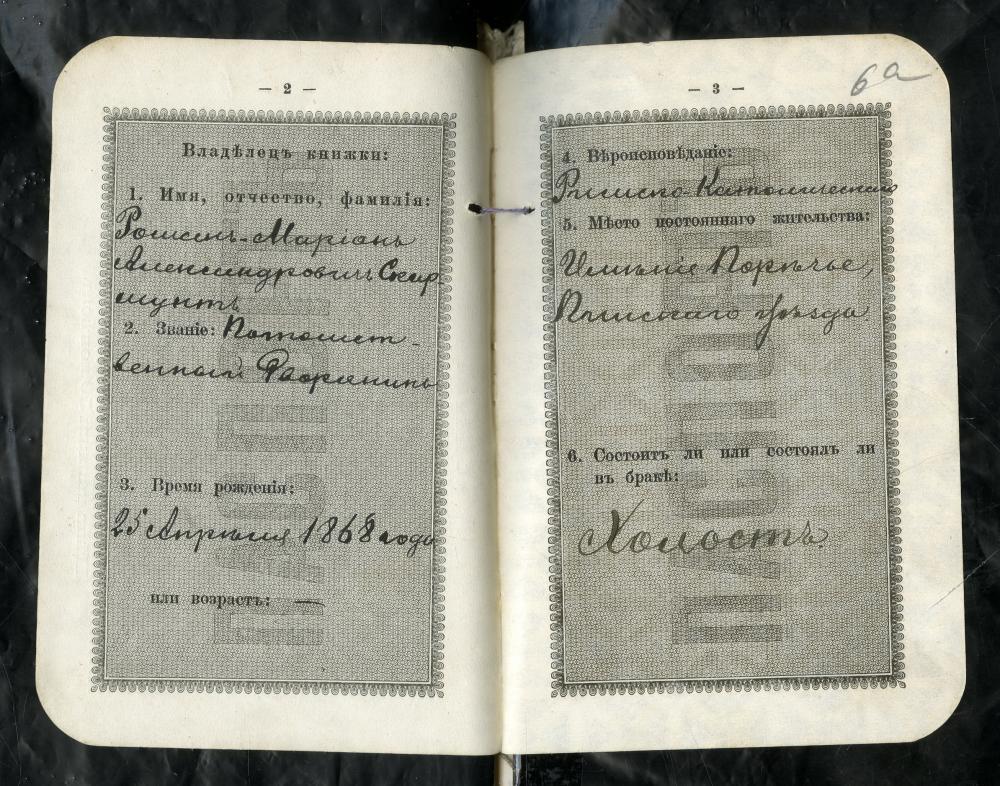 — 2 —
Владѣлецъ книжки:
1. Имя, отчество, фамилія:
Романъ-Маріанъ
Александровичъ Скир-
мунтъ
2. Званіе: Потомст-
венный Дворянинъ
3. Время рожденія:
25 Апрѣля 1868 года
или возрастъ: —
— 3 —
6а
4. Вѣроисповѣданіе:
Римско-Католическаго
5. Мѣсто постояннаго жительства:
Имѣніе Порѣчье,
Пинскаго уѣзда
6. Состоитъ ли или состоялъ ли
въ бракѣ:
Холостъ.
ПАСПОРТЪ